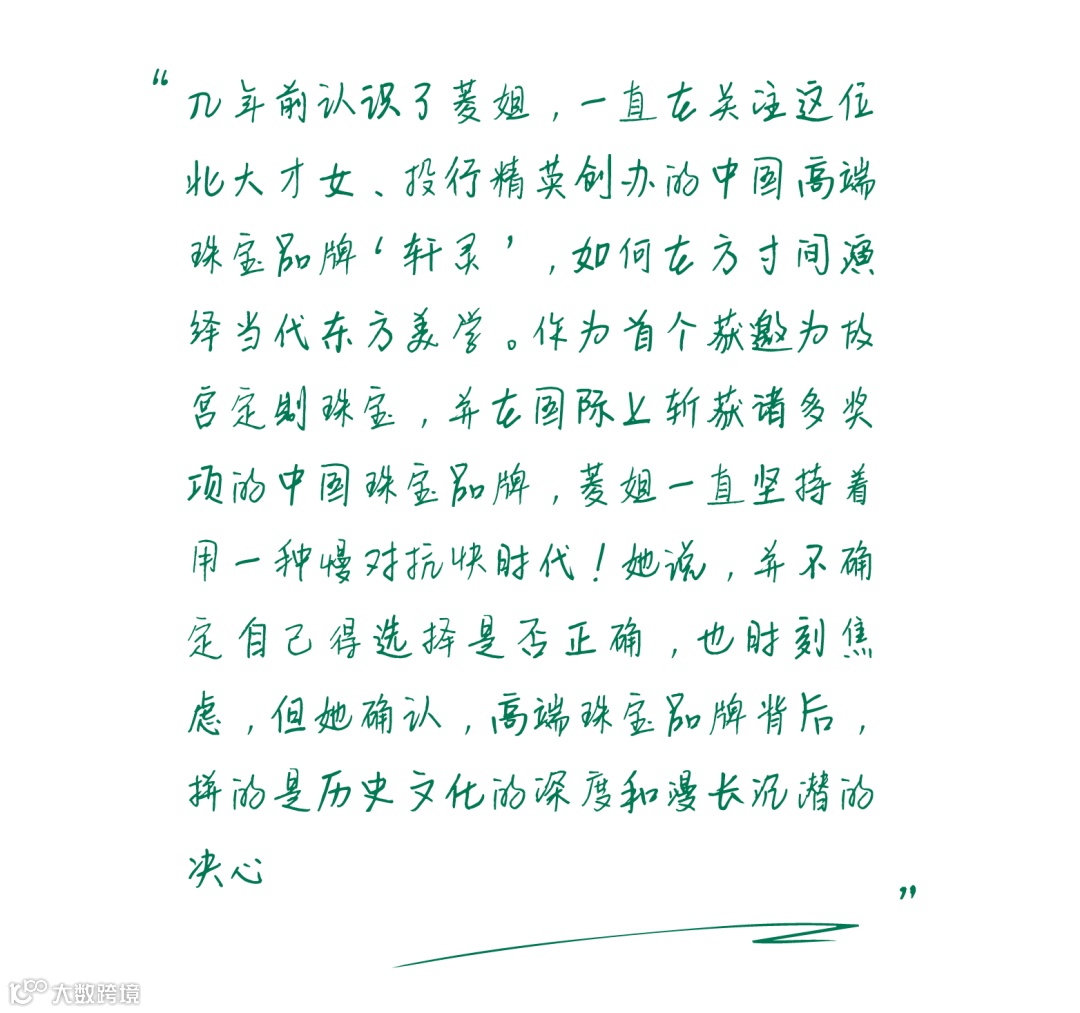 “几年前认识了菱姐，一直在关注这位
北大才女、投行精英创办的中国高端
珠宝品牌‘轩灵’，如何在方寸间演
绎当代东方美学。作为首个获邀为故
宫定制珠宝，并在国际上斩获诸多奖
项的中国珠宝品牌，菱姐一直坚持着
用一种慢对抗快时代！她说，并不确
定自己得选择是否正确，也时刻焦
虑，但她确认，高端珠宝品牌背后，
拼的是历史文化的深度和漫长沉潜的
决心
”
大数跨境